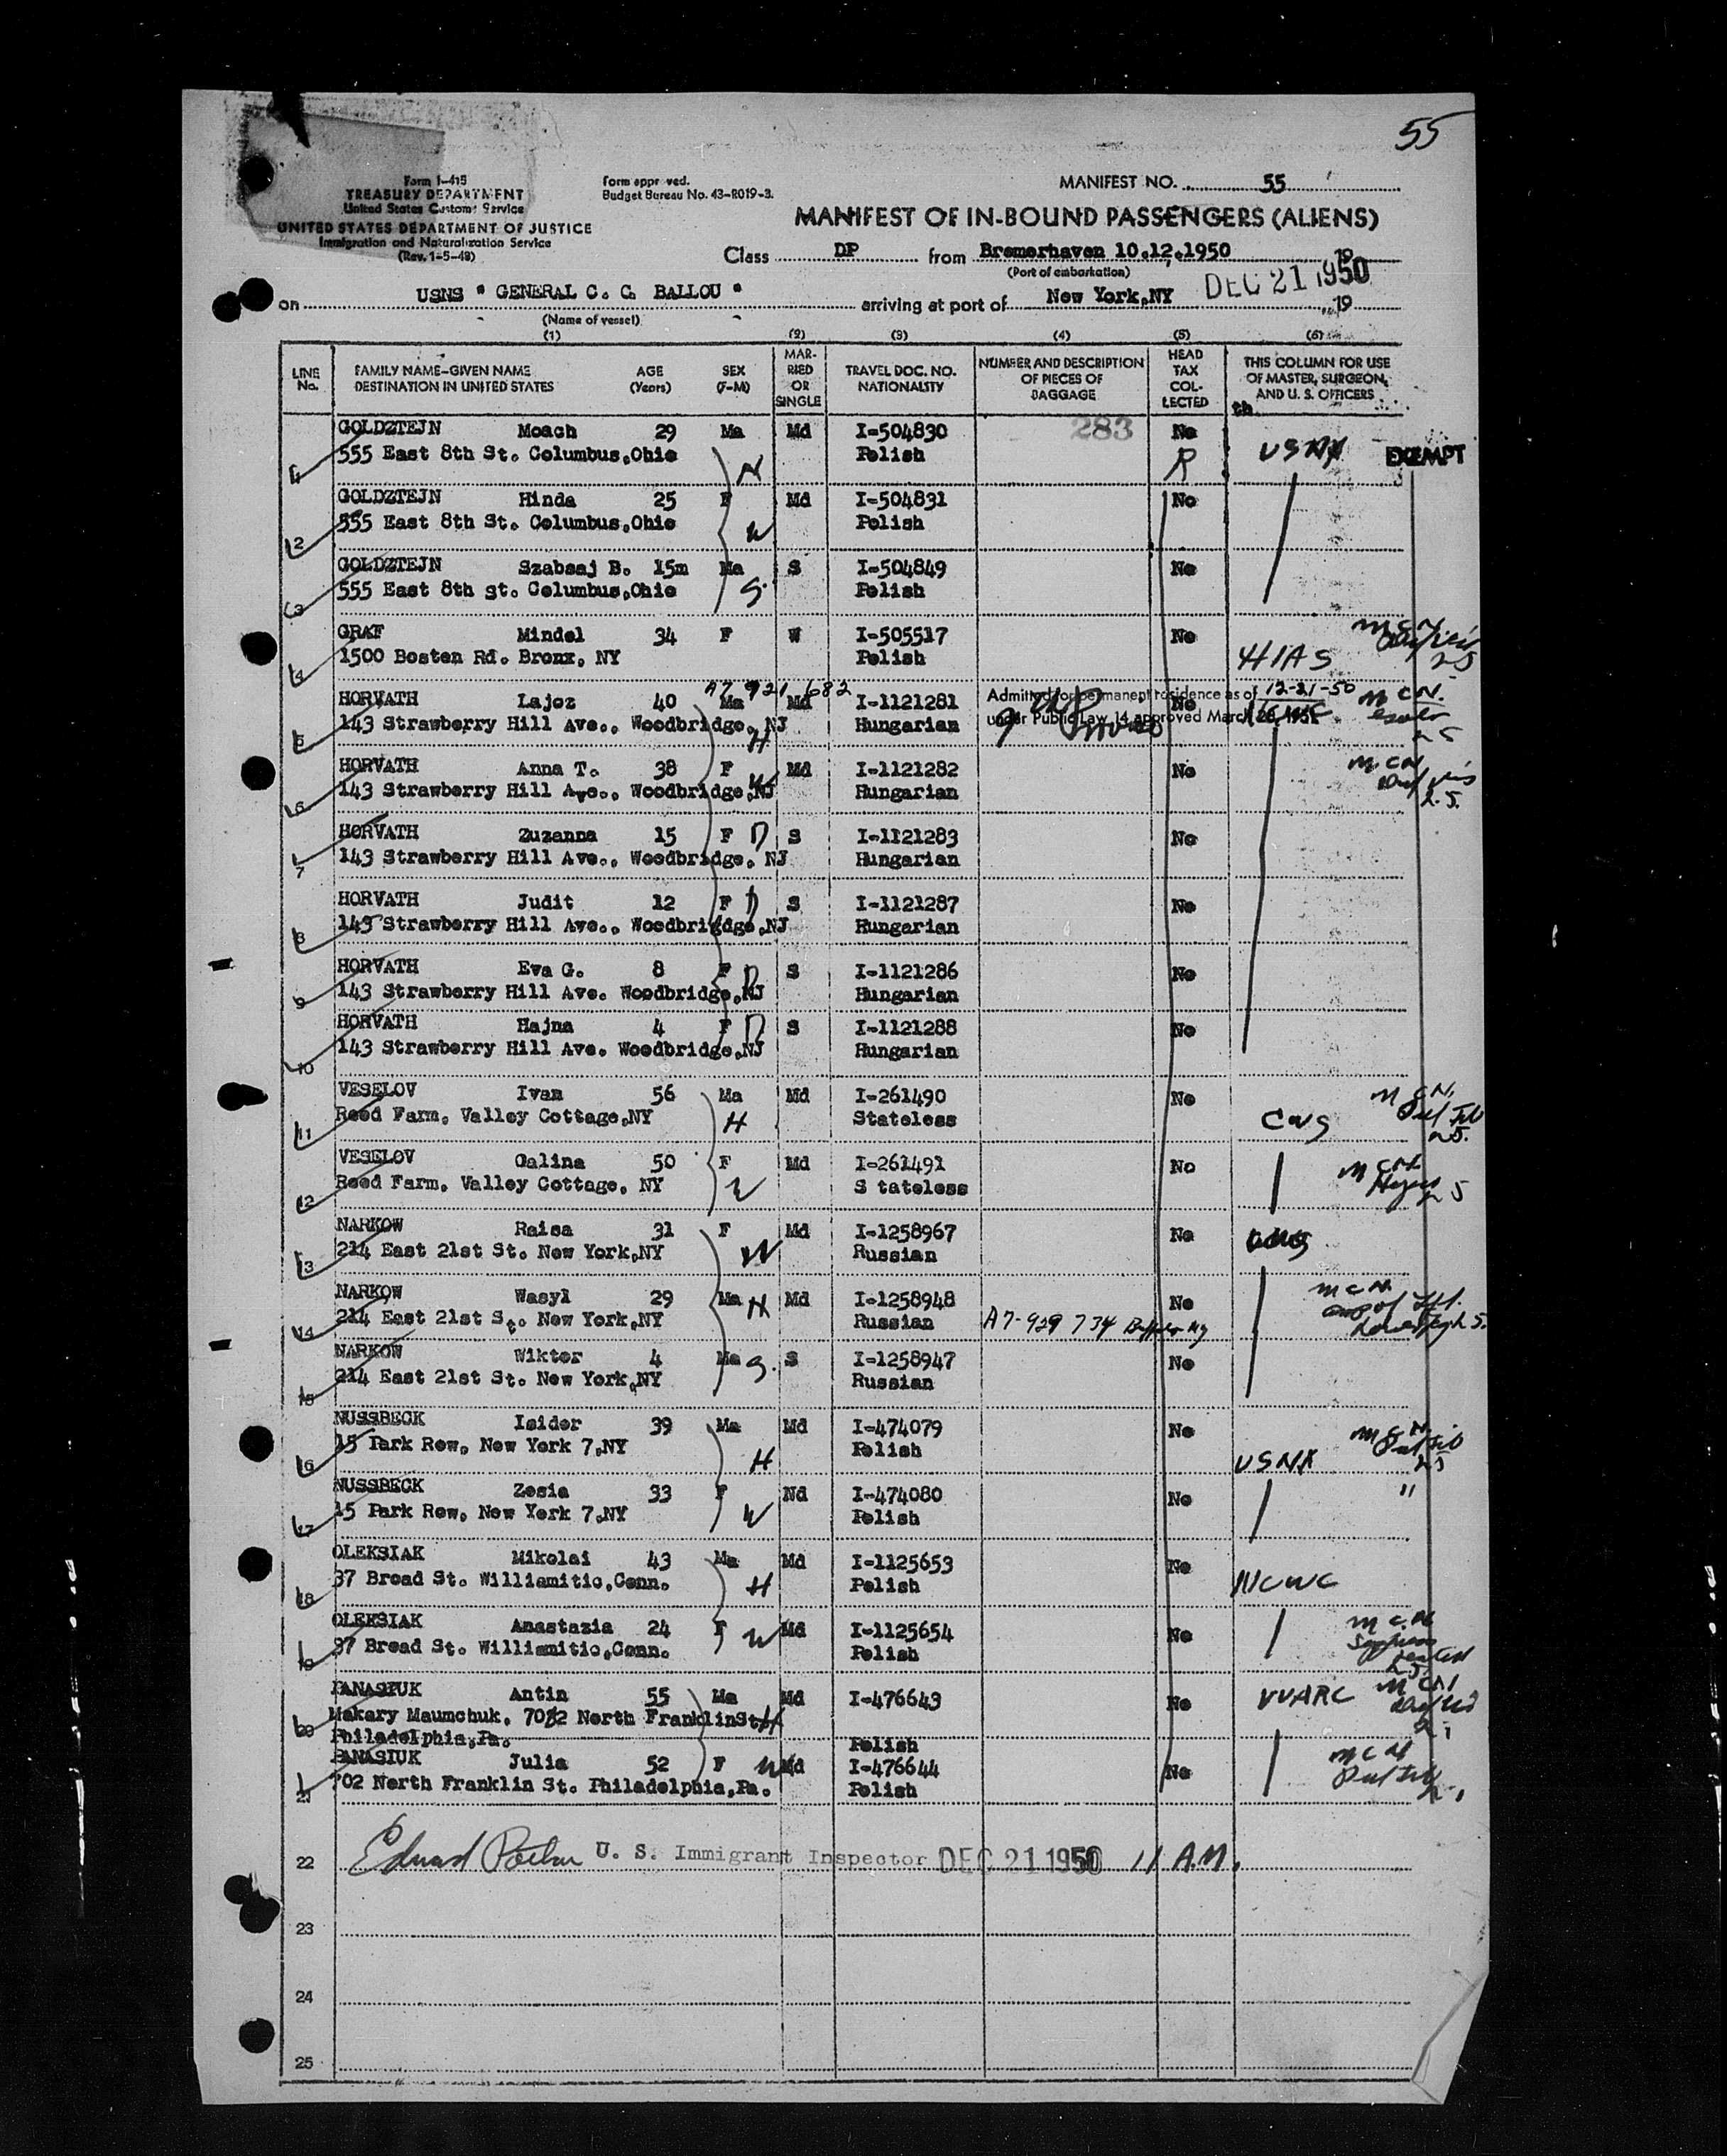 55
Form I-415
TREASURY DEPARTMENT
United States Customs Service
UNITED STATES DEPARTMENT OF JUSTICE
Immigration and Naturalization Service
(Rev. 1-5-48)
Form approved.
Budget Bureau No. 43-R019-3.
MANIFEST NO. 55
MANIFEST OF IN-BOUND PASSENGERS (ALIENS)
Class DP from Bremerhaven 10.12.1950 19
(Port of embarkation)
on USNS " GENERAL C. C. BALLOU " arriving at port of New York,NY DEC 21 1950 19
(Name of vessel)
(1) (2) (3) (4) (5) (6)
LINE No. FAMILY NAME-GIVEN NAME DESTINATION IN UNITED STATES AGE (Years) SEX (F-M) MARRIED OR SINGLE TRAVEL DOC. NO. NATIONALITY NUMBER AND DESCRIPTION OF PIECES OF BAGGAGE HEAD TAX COLLECTED THIS COLUMN FOR USE OF MASTER, SURGEON, AND U. S. OFFICERS
GOLDZTEJN Moach 29 Ma Md I-504830 283 No USNA EXEMPT
1 555 East 8th St. Columbus,Ohio Polish R
GOLDZTEJN Hinda 25 F Md I-504831 No
2 555 East 8th St. Columbus,Ohio W Polish
GOLDZTEJN Szabsaj B. 15m Ma S I-504849 No
3 555 East 8th st. Columbus,Ohio S. Polish
GRAF Mindel 34 F W I-505517 No HIAS
4 1500 Boston Rd. Bronx, NY Polish
A7 921 682
HORVATH Lajoz 40 Ma Md I-1121281 Admitted for permanent residence as of 12-21-50 No
5 143 Strawberry Hill Ave., Woodbridge, NJ H Hungarian under Public Law 14 approved March 28, 1951
HORVATH Anna T. 38 F Md I-1121282 No
6 143 Strawberry Hill Ave., Woodbridge,NJ W Hungarian
HORVATH Zuzanna 15 F D S I-1121283 No
7 143 Strawberry Hill Ave., Woodbridge, NJ Hungarian
HORVATH Judit 12 F D S I-1121287 No
8 143 Strawberry Hill Ave., Woodbrigdge,NJ Hungarian
HORVATH Eva G. 8 F D S I-1121286 No
9 143 Strawberry Hill Ave. Woodbridge,NJ Hungarian
HORVATH Hajna 4 F D S I-1121288 No
10 143 Strawberry Hill Ave. Woodbridge,NJ Hungarian
VESELOV Ivan 56 Ma Md I-261490 No CWS
11 Reed Farm, Valley Cottage,NY H Stateless
VESELOV Galina 50 F Md I-261491 No
12 Reed Farm, Valley Cottage, NY W S tateless
NARKOW Raisa 31 F Md I-1258967 No
13 214 East 21st St. New York,NY W Russian
NARKOW Wasyl 29 Ma H Md I-1258948 No
14 214 East 21st St. New York,NY Russian A7-929 734 Buffalo NY
NARKOW Wiktor 4 Ma S. S I-1258947 No
15 214 East 21st St. New York,NY Russian
NUSSBECK Isider 39 Ma Md I-474079 No USNA
16 15 Park Row, New York 7,NY H Polish
NUSSBECK Zosia 33 F Nd I-474080 No "
17 15 Park Row, New York 7,NY W Polish
OLEKSIAK Mikolai 43 Ma Md I-1125653 No NCWC
18 37 Broad St. Williamitic,Conn. H Polish
OLEKSIAK Anastazia 24 F W Md I-1125654 No
19 37 Broad St. Williamitic,Conn. Polish
PANASIUK Antin 55 Ma Md I-476643 No
20 Makary Maumchuk, 702 North FranklinSt. H
Philadelphia,Pa. Polish
PANASIUK Julia 52 F W Md I-476644 No
21 702 North Franklin St. Philadelphia,Pa. Polish
22 U. S. Immigrant Inspector DEC 21 1950 11 A.M.
23
24
25